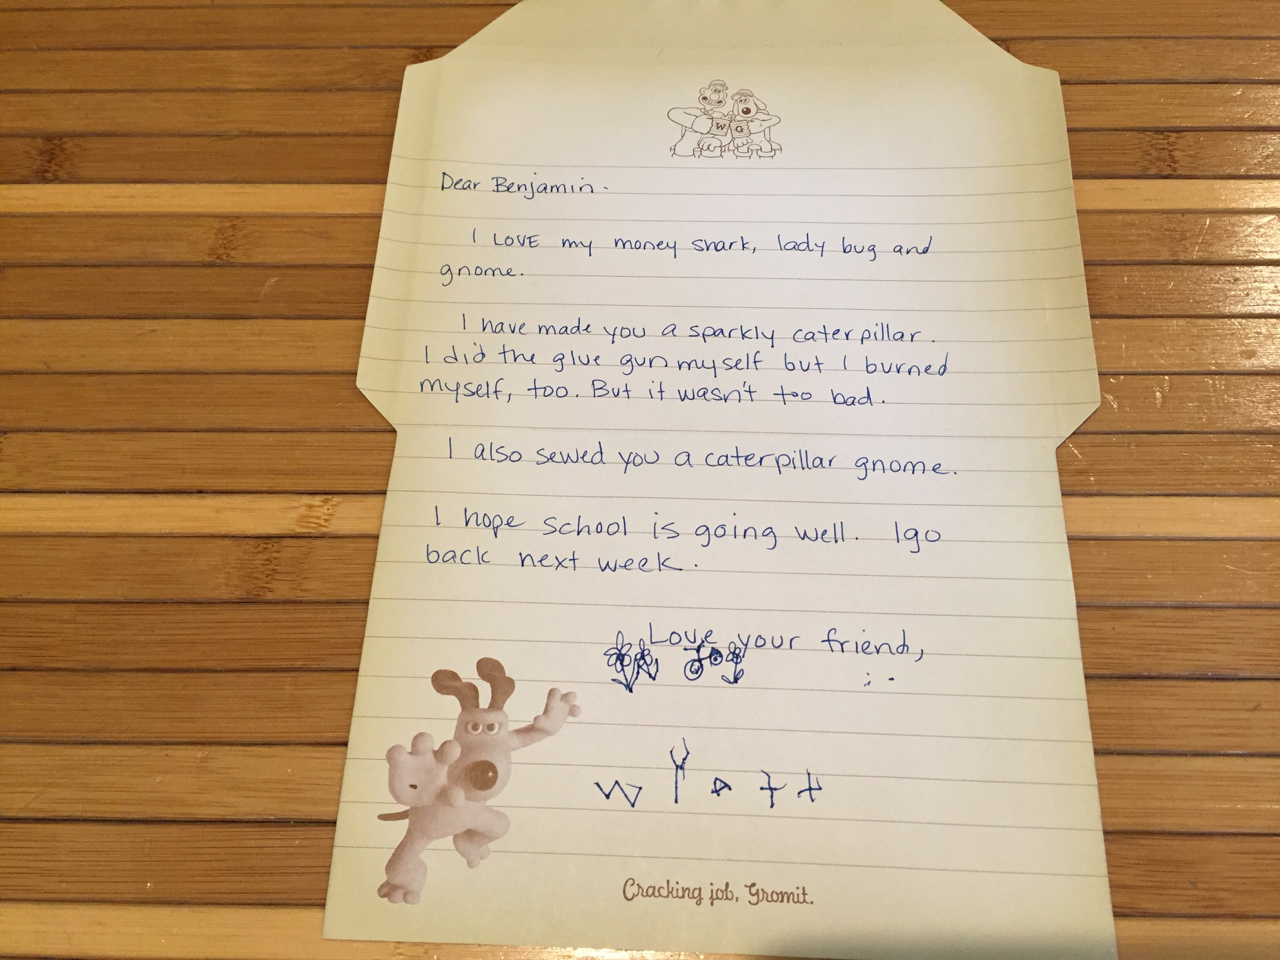 W G
Dear Benjamin.
I LOVE my money shark, lady bug and
gnome.
I have made you a sparkly caterpillar.
I did the glue gun myself but I burned
myself, too. But it wasn't too bad.
I also sewed you a caterpillar gnome.
I hope school is going well. I go
back next week.
Love your friend,
wyatt
Cracking job, Gromit.